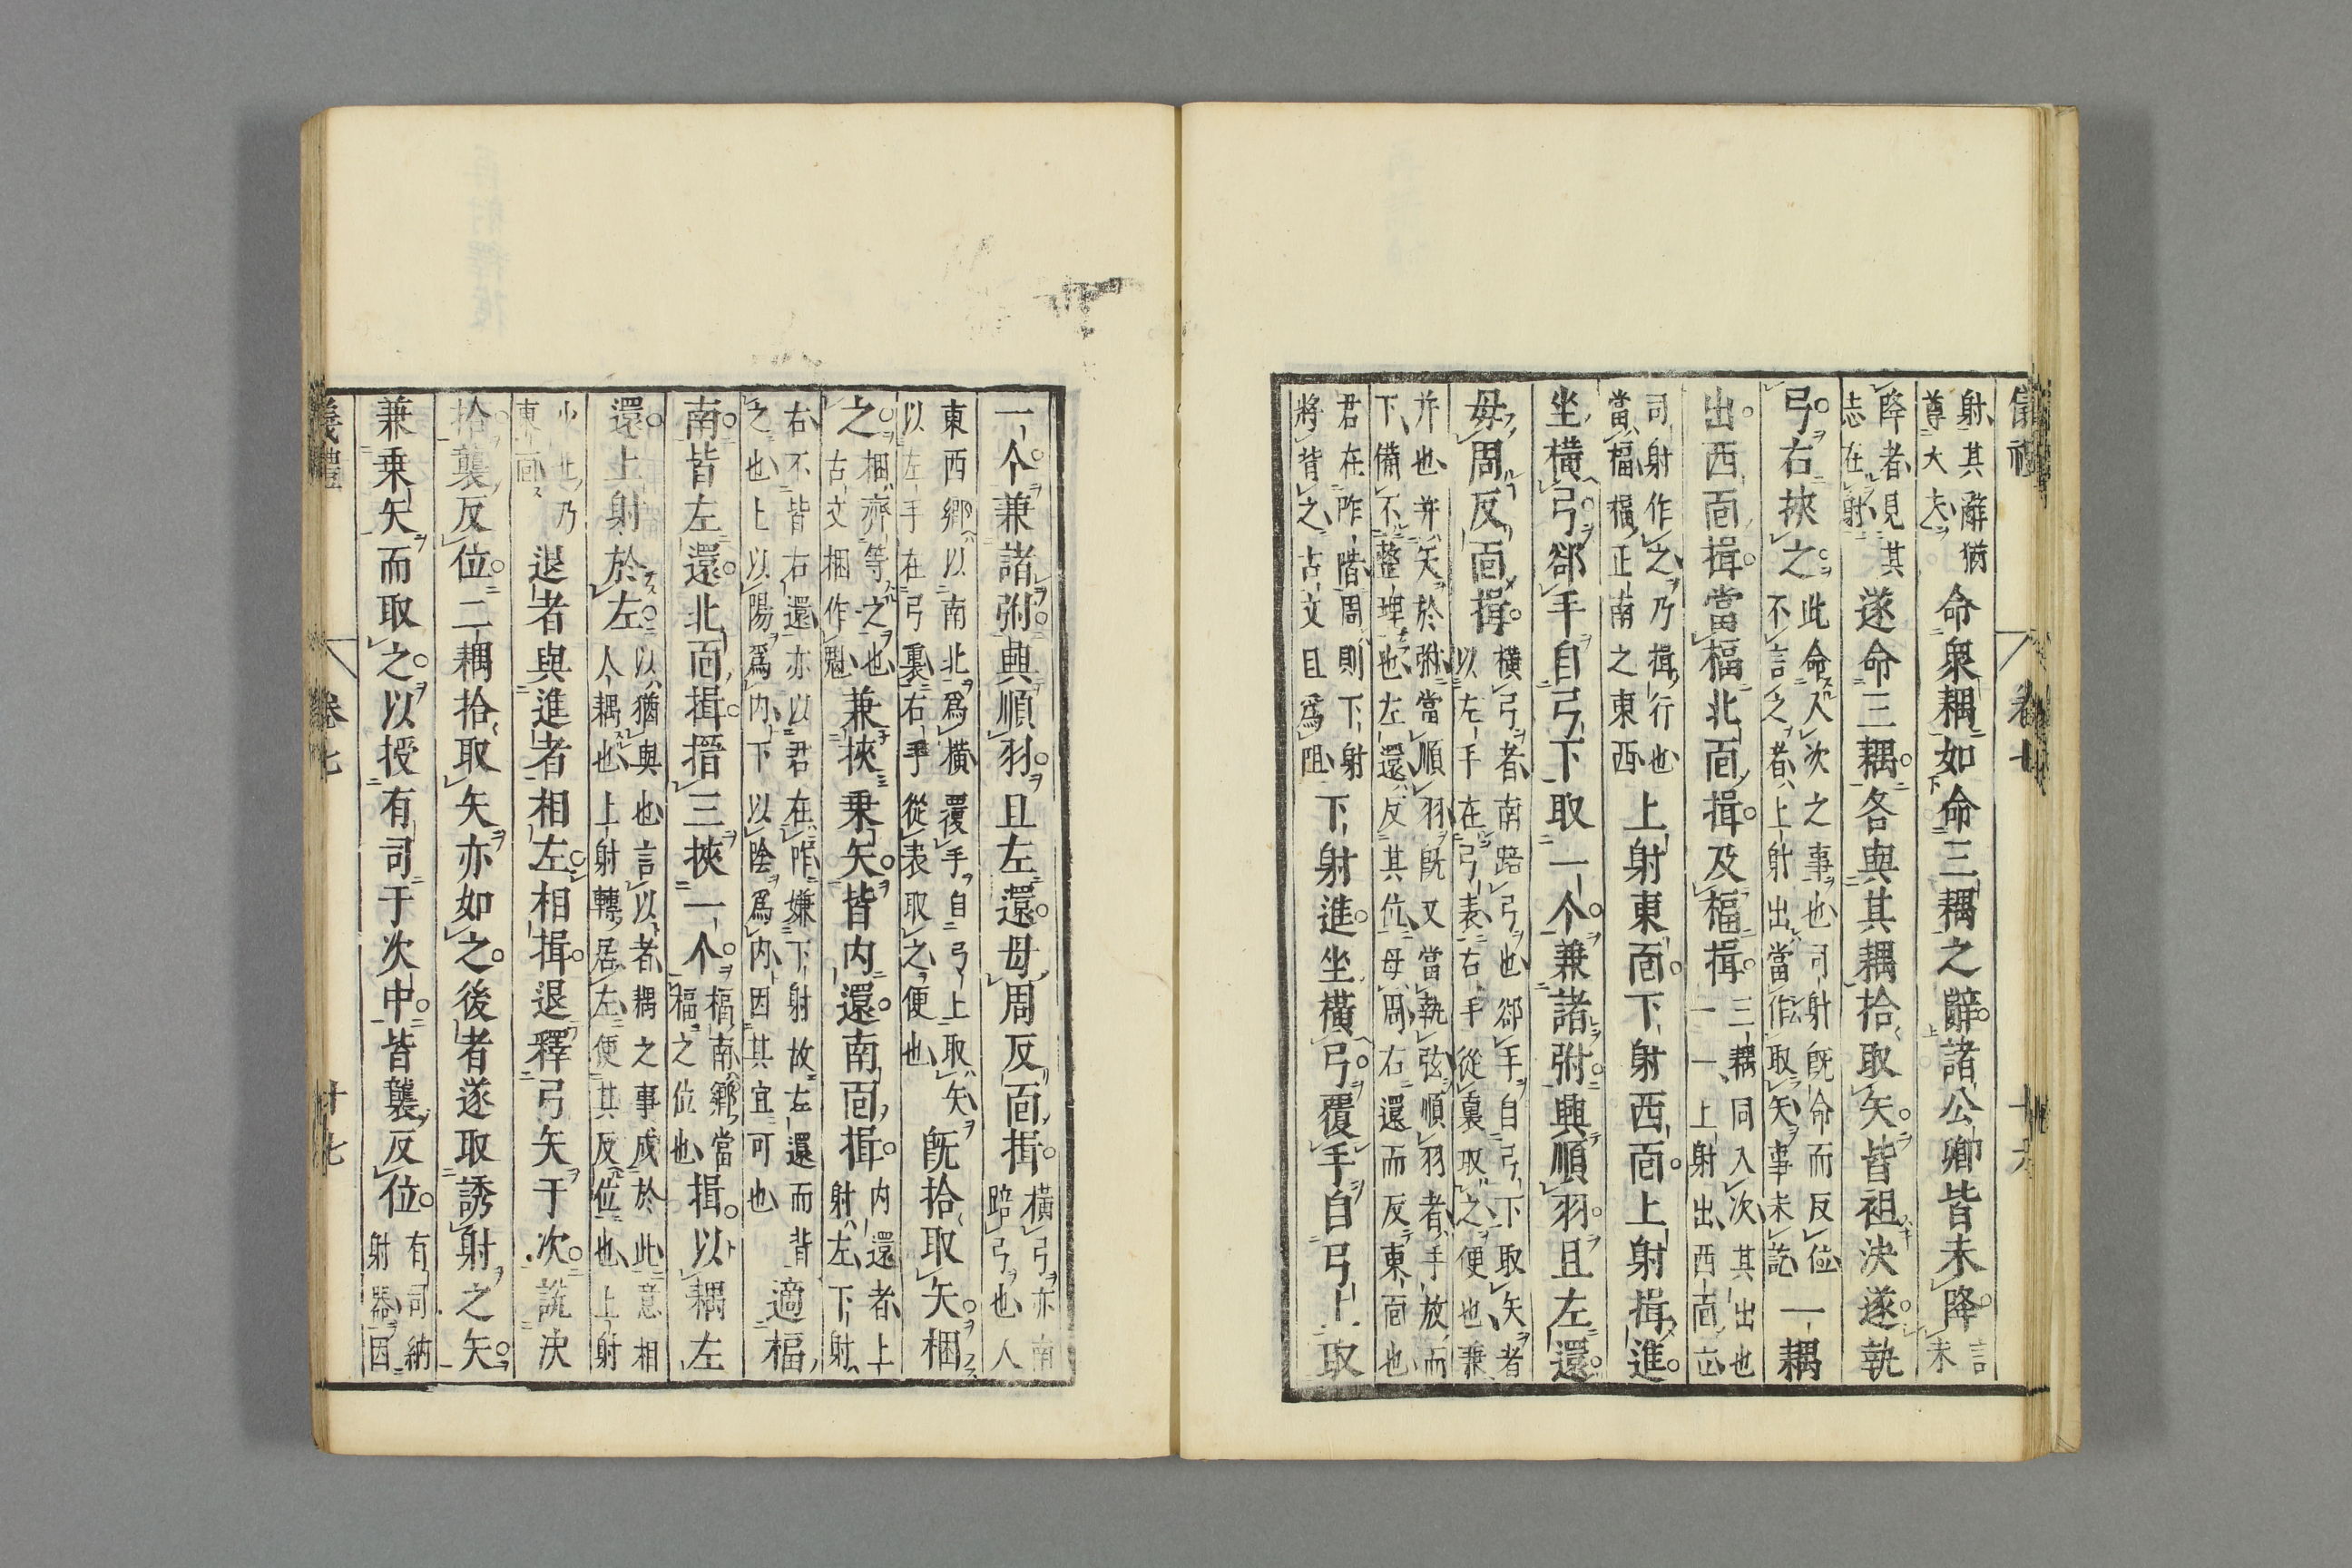 儀禮 卷七 十六
射其辭猶
尊大夫
命衆耦如命三耦之辭諸公卿皆未降
言
未
降者見其
志在射
遂命三耦各與其耦拾取矢皆袒決遂執
弓右挾之
此命入次之事也司射既命而反位
不言之者上射出當作取矢事未訖
一耦
出西面揖當楅北面揖及楅揖
三耦同入次其出也
一一上射出西面立
司射作之乃揖行也
當楅楅正南之東西
上射東面下射西面上射揖進
坐橫弓郤手自弓下取一个兼諸弣興順羽且左還
毋周反面揖
橫弓者南踣弓也郤手自弓下取矢者
以左手在弓表右手從裏取之便也兼
并也并矢於弣當順羽既又當執弦順羽者手放而
下備不整理也左還反其位毋周右還而反東面也
君在阼階周則下射
將背之古文且爲阻
下射進坐橫弓覆手自弓上取
一个兼諸弣興順羽且左還毋周反面揖
橫弓亦南
踣弓也人
東西鄉以南北爲橫覆手自弓上取矢
以左手在弓裏右手從表取之便也
既拾取矢梱
之
梱齊等之也
古文梱作魁
兼挾乘矢皆内還南面揖
内還者上
射左下射
右不皆右還亦以君在阼嫌下射故左還而背
之也上以陽爲内下以陰爲内因其宜可也
適楅
南皆左還北面揖搢三挾一个
楅南鄉當
楅之位也
揖以耦左
還上射於左
以猶與也言以者耦之事成於此意相
人耦也上射轉居左便其反位也上射
少北乃
東面
退者與進者相左相揖退釋弓矢于次說決
拾襲反位二耦拾取矢亦如之後者遂取誘射之矢
兼乘矢而取之以授有司于次中皆襲反位
有司納
射器因
儀禮 卷七 十七